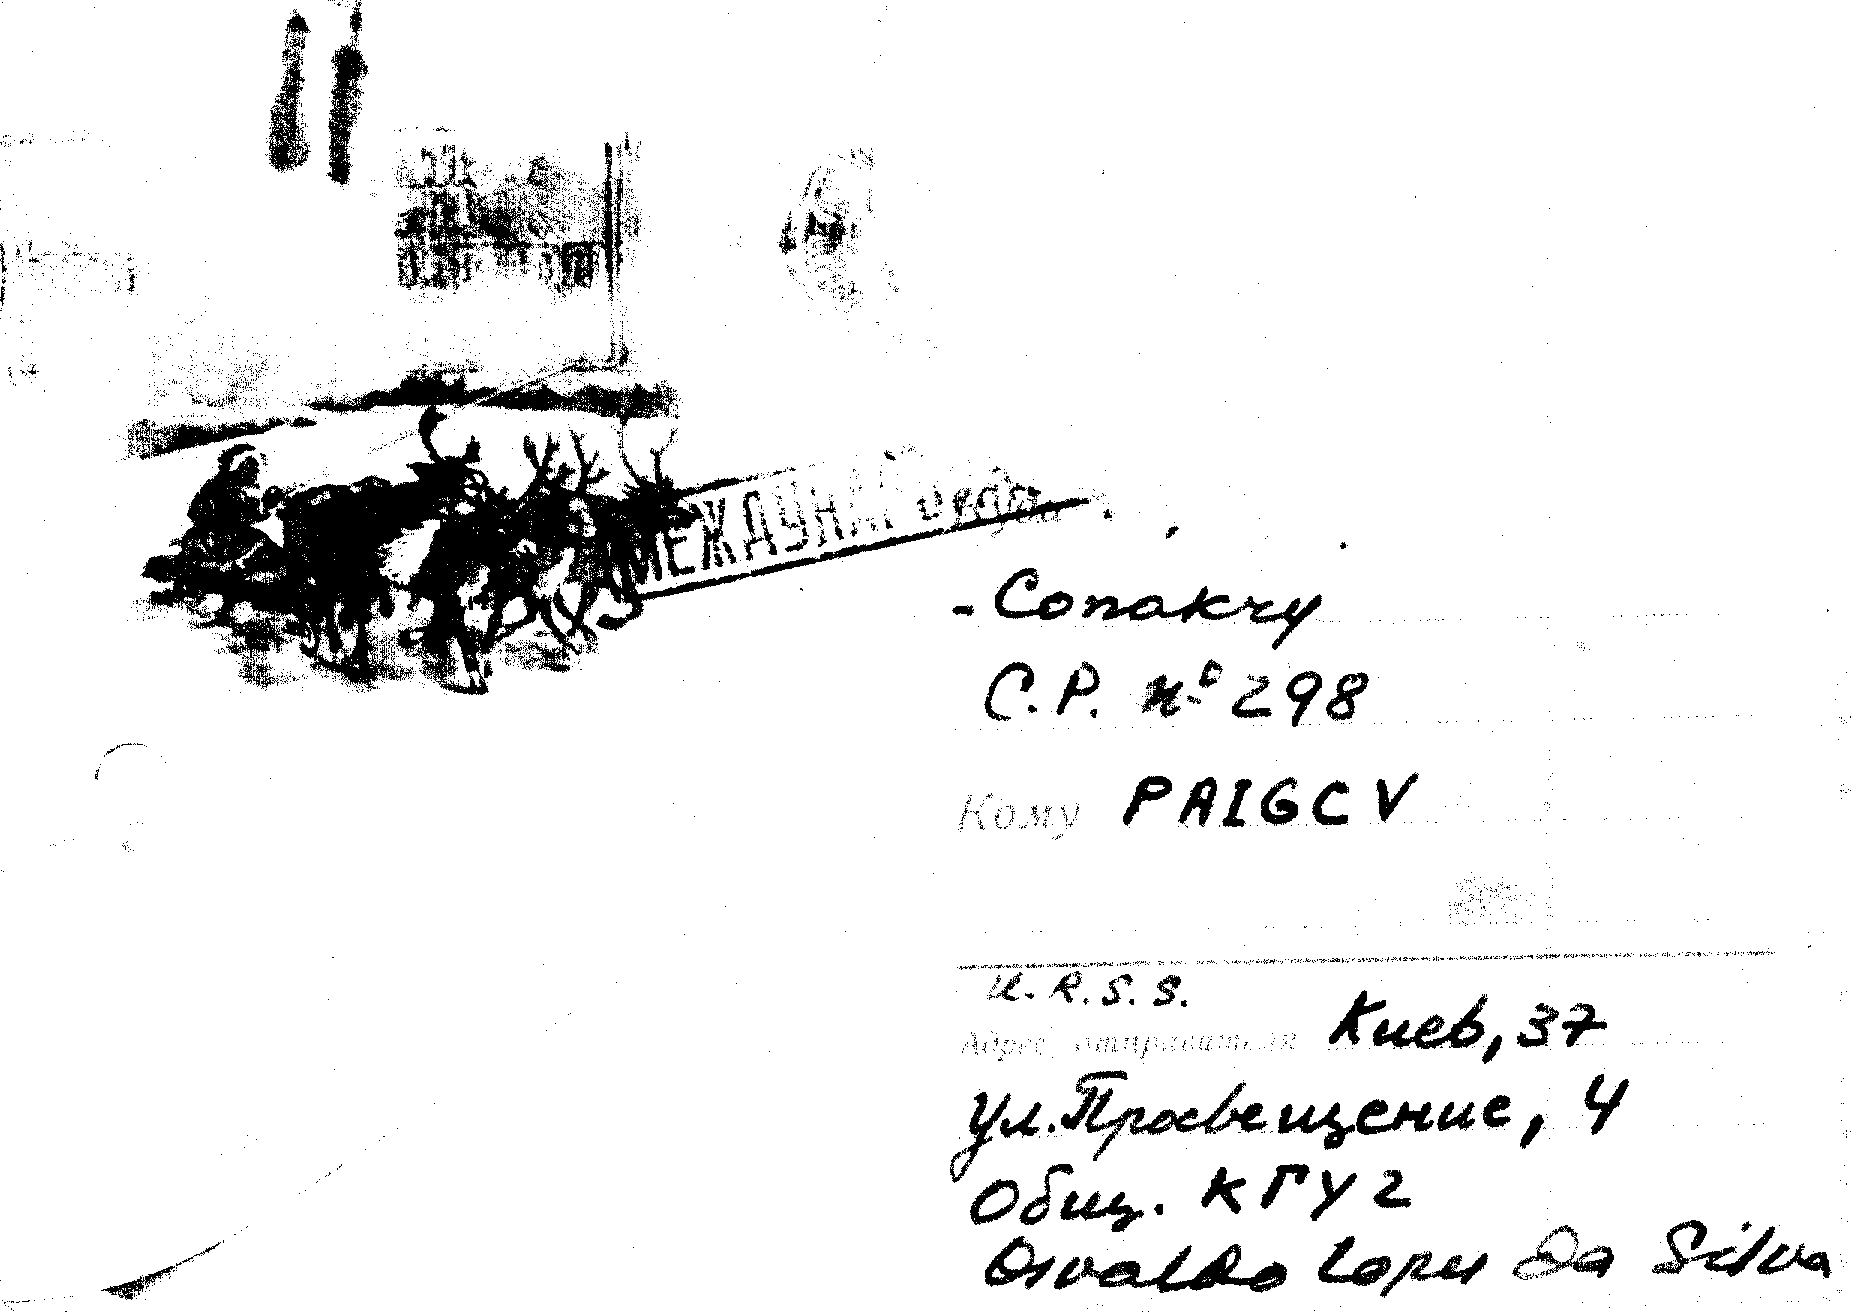 МЕЖДУНАР
- Conakry
C.P. nº 298
Кому PAIGCV
U.R.S.S.
Адрес отправителя Киев, 37
ул. Просвещение, 4
Общ. КГУ 2
Osvaldo Lopes Da Silva